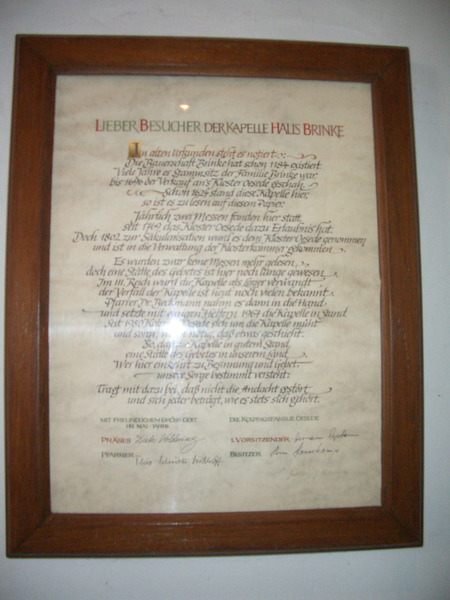 LIEBER BESUCHER DER KAPELLE HAUS BRINKE
In alten Urkunden steht es notiert:
Die Bauerschaft Brinke hat schon 1184 existiert.
Viele Jahre es Stammsitz der Familie Brinke war
bis 1696 der Verkauf an's Kloster Oesede geschah.
Schon 1624 stand diese Kapelle hier,
so ist es zu lesen auf diesem Papier.
Jährlich zwei Messen fanden hier statt,
seit 1769 das Kloster Oesede dazu Erlaubnis hat.
Doch 1802 zur Säkularisation wurd es dem Kloster Oesede genommen
und ist in die Verwaltung der Klosterkammer gekommen.
Es wurden zwar keine Messen mehr gelesen,
doch eine Stätte des Gebetes ist hier noch lange gewesen.
Im III. Reich wurd die Kapelle als Lager verwandt
der Verfall der Kapelle ist heut noch vielen bekannt.
Pfarrer Dr. Beckmann nahm es dann in die Hand
und setzte mit einigen Helfern 1967 die Kapelle in Stand.
Seit 1980 Oesede sich um die Kapelle müht
und sorgt, wenn nötig, daß etwas geschieht.
So, daß die Kapelle in gutem Stand
eine Stätte des Gebetes in unserem Land.
Wer hier einkehrt zu Besinnung und Gebet
unsre Sorge bestimmt versteht:
Tragt mit dazu bei, daß nicht die Andacht gestört
und sich jeder beträgt, wie es stets sich gehört.
MIT FREUNDLICHEM GRUSS GOTT
IM MAI 1998
DIE KOLPINGSFAMILIE OESEDE
PRÄSES:
1. VORSITZENDER:
PFARRER:
BESITZER: